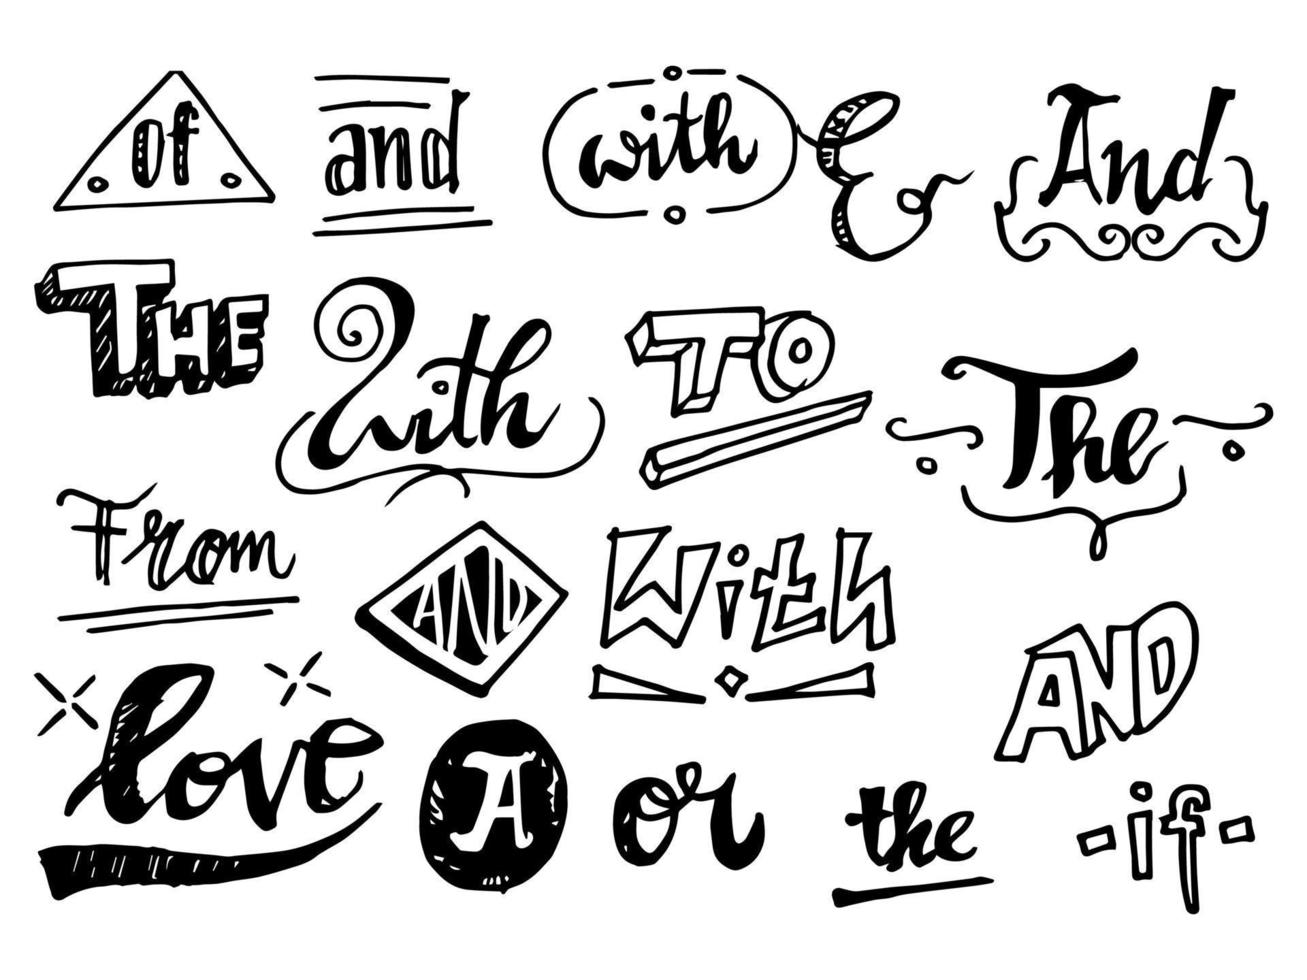 of and with & And
THE With TO The
From AND With AND
love A or the -if-